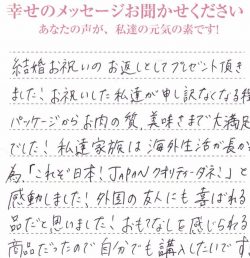 幸せのメッセージお聞かせください
あなたの声が、私達の元気の素です!
結婚お祝いのお返しとしてプレゼント頂き
ました!お祝いした私達が申し訳なくなる程
パッケージからお肉の質、美味さまで大満足
でした!私達家族は海外生活が長か
為、「これぞ日本!JAPANクオリティーダネ!」と
感動しました!外国の友人にも喜ばれる
品だと思いました!おもてなしを感じられる
商品だったので自分でも購入したいです。